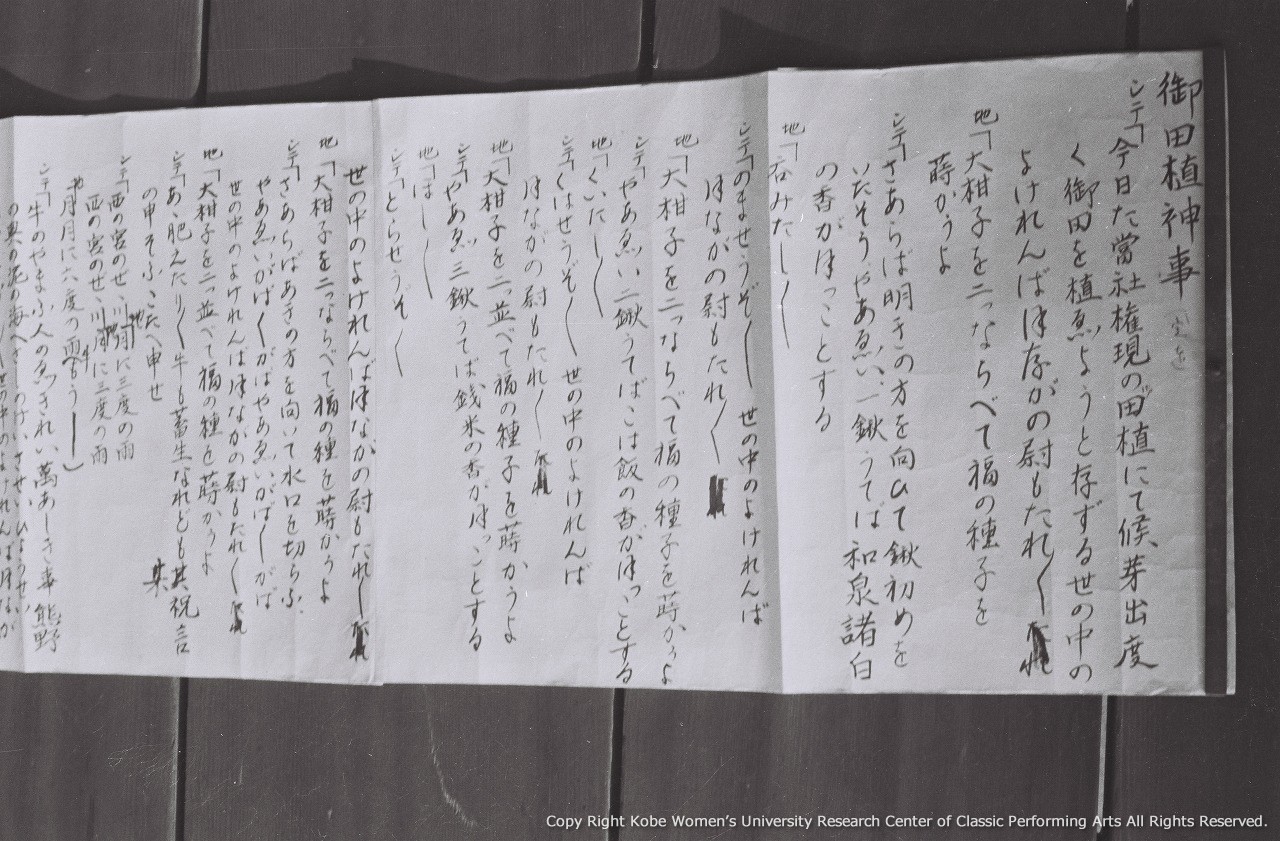 御田植神事
シテ「今日た當社権現の田植にて候芽出度
く御田を植ゑようと存ずる世の中の
よけれんばほ存がの尉もたれ〱
地「大柑子を二っならべて福の種子を
蒔かうよ
シテ「さあらば明きの方を向ひて鍬初めを
いたそうやあゑい、一鍬うてば和泉諸白
の香がほっことする
地「呑みたし〱
シテ「のませうぞ〱世の中のよけれんば
ほながの尉もたれ〱
地「大柑子を二っならべて福の種子を蒔かうよ
シテ「やあゑい二鍬うてばこは飯の香がほっことする
地「くいたし〱
シテ「くはせうぞ〱世の中のよけれんば
ほながの尉もたれ〱
地「大柑子を二っ並べて福の種子を蒔かうよ
シテ「やあゑ三鍬うてば銭米の香がほっことする
地「ほし〱
シテ「とらせうぞ〱
世の中のよけれんばほながの尉もたれ〱
地「大柑子を二っならべて福の種を蒔かうよ
シテ「さあらばあきの方を向いて水口を切らふ
やあゑいがば〱がばやあゑいがば〱がば
世の中のよけれんばほながの尉もたれ〱
地「大柑子を二っ並べて福の種を蒔かうよ
シテ「あゝ肥えたり〱牛も蓄生なれども其祝言
の申そふこたへ申せ
シテ「西の宮のせ、川月に三度の雨
西の宮のせ、川月に三度の雨
地 月月に六度の雨
シテ「牛のやまふ人のゑきれい萬あしき事熊野
Copy Right Kobe Women's University Research Center of Classic Performing Arts All Rights Reserved.